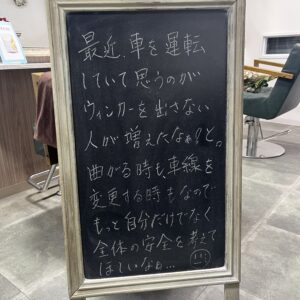 最近、車を運転
していて思うのが
ウィンカーを出さない
人が増えたなぁ?と。
曲がる時も車線を
変更する時もなので
もっと自分だけでなく
全体の安全を考えて
ほしいなぁ…